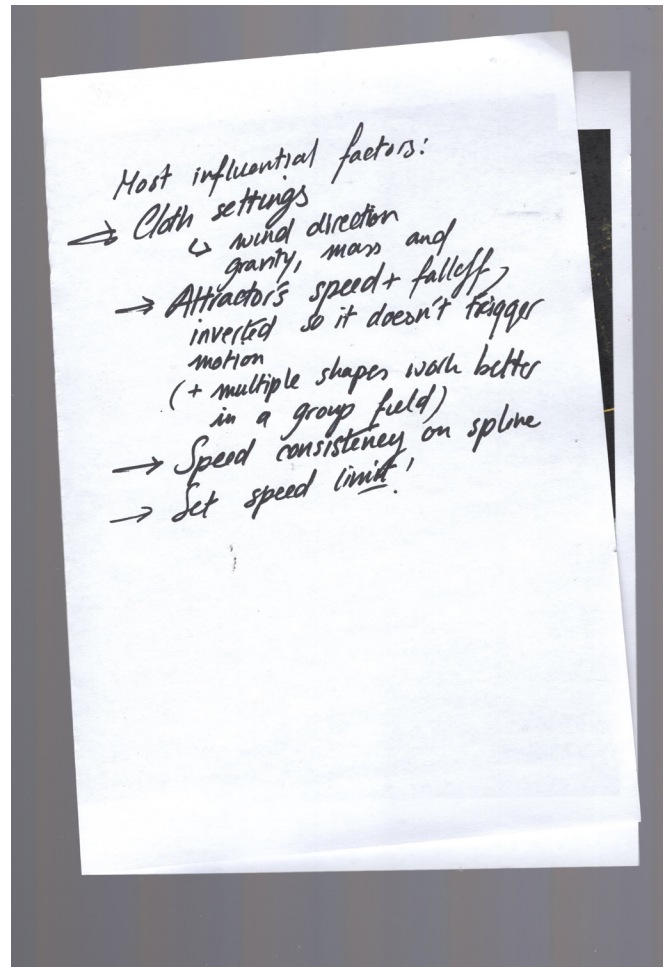 Most influential factors:
→ Cloth settings
↳ wind direction
gravity, mass and
→ Attractor's speed + falloff,
inverted so it doesn't trigger
motion
(+ multiple shapes work better
in a group field)
→ Speed consistency on spline
→ Set speed limit!